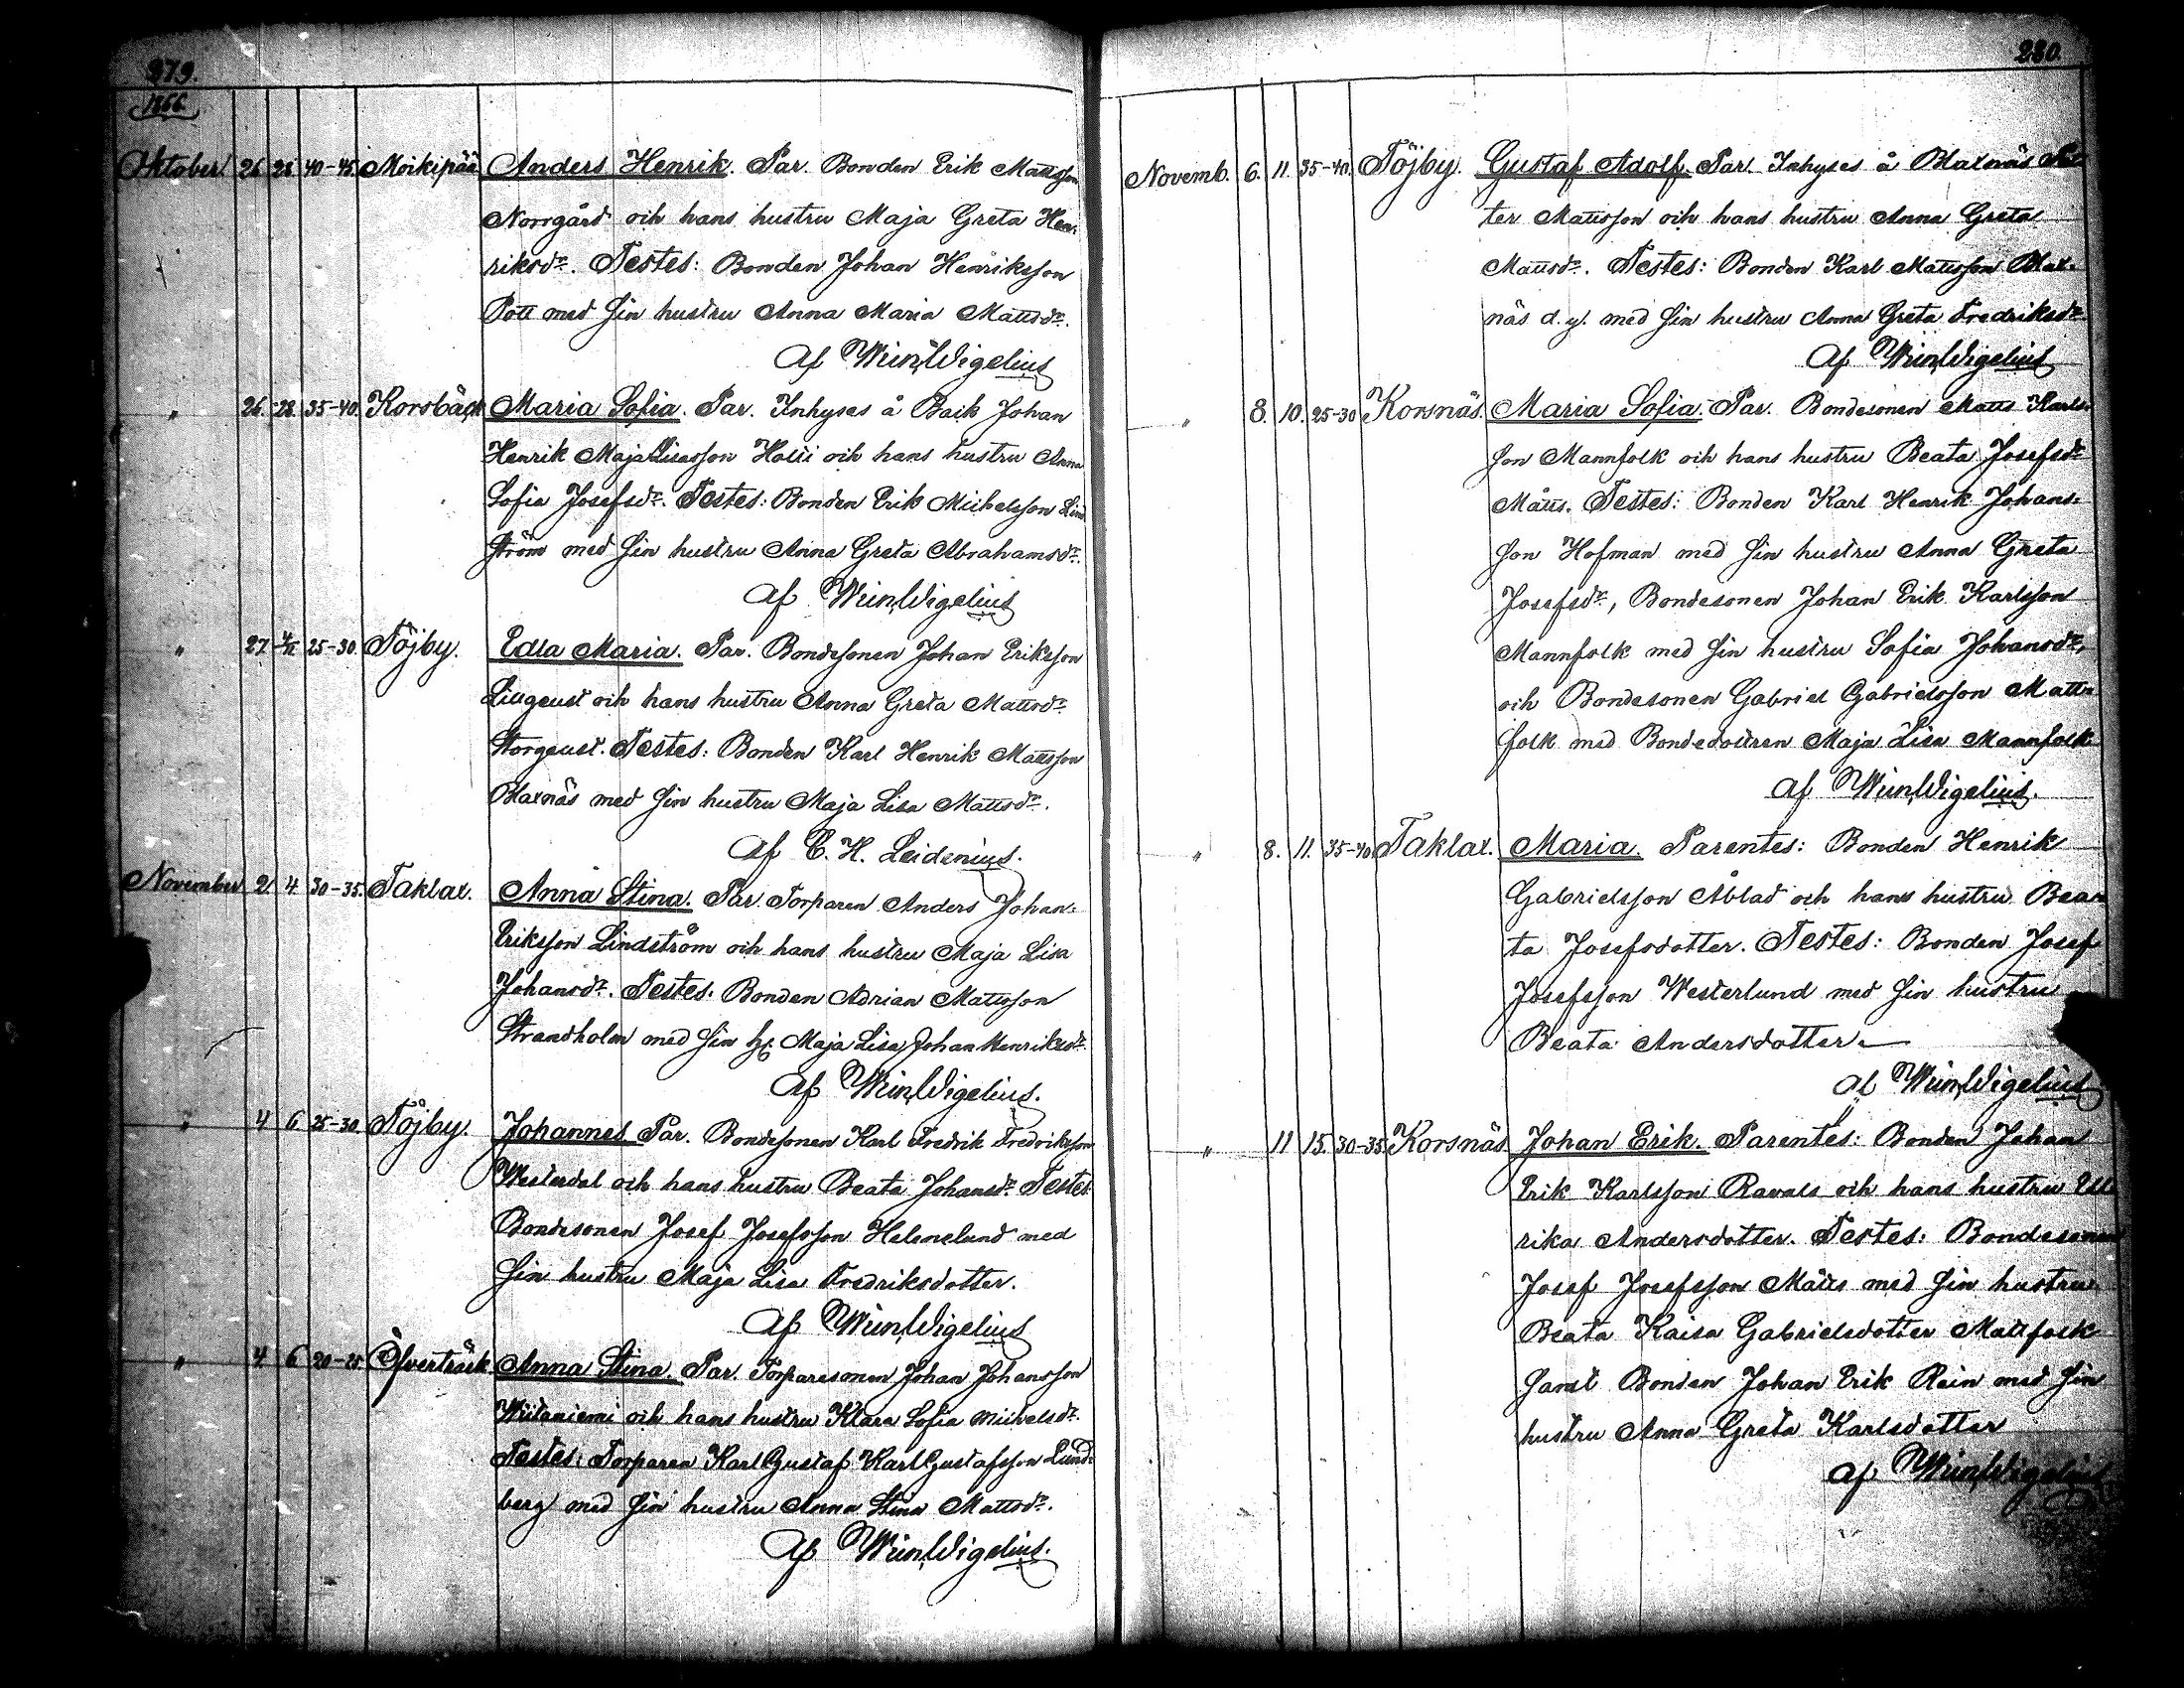 279.
1866.
Oktober. 26 28 40-45 Moikipää Anders Henrik. Par. Bonden Erik Mattsson
Norrgård och hans hustru Maja Greta Hen-
riksdr. Testes: Bonden Johan Henriksson
Pott med sin hustru Anna Maria Mattsdr.
Af Wice Wigelius
" 26. 28. 35-40. Korsbäck Maria Sofia. Par. Inhyses å Back Johan
Henrik MajaLisasson Holli och hans hustru Anna
Sofia Josefsdr. Testes: Bonden Erik Michelsson Lind-
ström med sin hustru Anna Greta Abrahamsdr.
Af Wigelius
" 27. 4/11 25-30. Töjby. Edla Maria. Par. Bondesonen Johan Eriksson
Lillgeust och hans hustru Anna Greta Mattsdr
Storgeust. Testes: Bonden Karl Henrik Mattsson
Blaxnäs med sin hustru Maja Lisa Mattsdr.
Af C. H. Leidenius.
November 2. 4 30-35. Taklax. Anna Stina. Par. Torparen Anders Johan
Eriksson Lindström och hans hustru Maja Lisa
Johansdr. Testes: Bonden Adrian Mattsson
Strandholm med sin h. Maja Lisa Johan Henriksdr.
Af Wigelius.
" 4 6 25-30. Töjby. Johannes Par. Bondesonen Karl Fredrik Fredriksson
Westerdal och hans hustru Beata Johansdr. Testes
Bondesonen Josef Josefsson Helenelund med
sin hustru Maja Lisa Fredriksdotter.
Af Wigelius
" 4 6 20-25 Öfverträsk Anna Stina. Par. Torparesonen Johan Johansson
Wiitaniemi och hans hustru Klara Sofia Michelsdr.
Testes: Torparen Karl Gustaf Karl Gustafsson Lund-
berg med sin hustru Anna Stina Mattsdr.
Af Wigelius.
280.
Novemb. 6. 11. 35-40. Töjby. Gustaf Adolf. Par. Inhyses å Blaxnäs Pet-
ter Mattsson och hans hustru Anna Greta
Mattsdr. Testes: Bonden Karl Mattsson Blax-
näs d. y. med sin hustru Anna Greta Fredriksdr
Af Wigelius
" 8. 10. 25-30 Korsnäs. Maria Sofia. Par. Bondesonen Matts Karls-
son Mannfolk och hans hustru Beata Josefsdr
Mätts. Testes: Bonden Karl Henrik Johans-
son Hofman med sin hustru Anna Greta
Josefsdr, Bondesonen Johan Erik Karlsson
Mannfolk med sin hustru Sofia Johansdr,
och Bondesonen Gabriel Gabrielsson Matt-
folk med Bondedottren Maja Lisa Mannfolk
Af Wigelius.
" 8. 11. 35-40 Taklax. Maria. Parentes: Bonden Henrik
Gabrielsson Åblad och hans hustru Bea-
ta Josefsdotter. Testes: Bonden Josef
Josefsson Westerlund med sin hustru
Beata Andersdotter
Af Wigelius
" 11 15. 30-35. Korsnäs Johan Erik. Parentes: Bonden Johan
Erik Karlsson Ravals och hans hustru Ul
rika Andersdotter. Testes: Bondesonen
Josef Josefsson Mätts med sin hustru
Beata Kaisa Gabrielsdotter Mattfolk
samt Bonden Johan Erik Rein med sin
hustru Anna Greta Karlsdotter
Af Wigelius